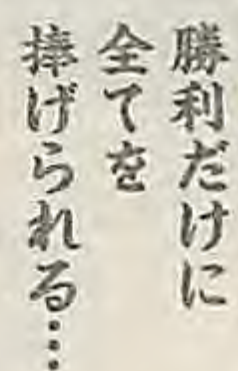 勝利だけに
全てを
捧げられる…